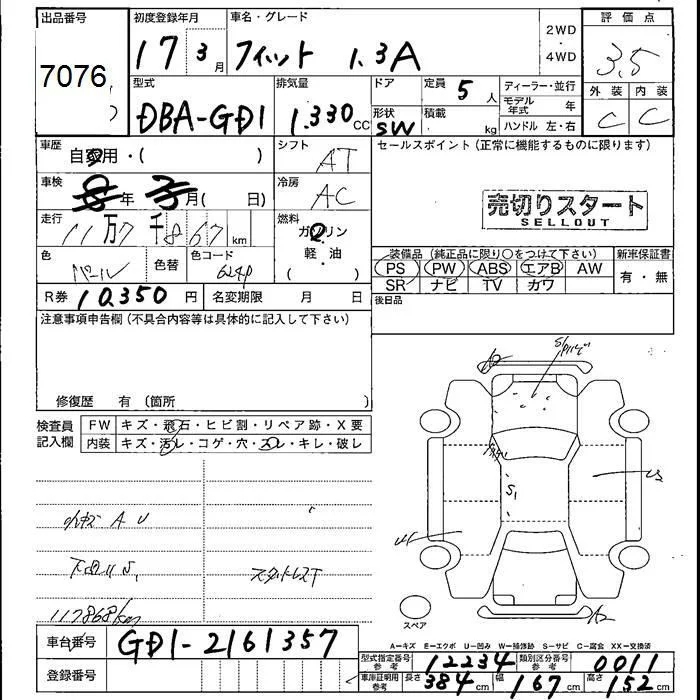 出品番号
7076
初度登録年月
17 3月
車名・グレード
フィット 1.3A
2WD
・
4WD
評価点
3.5
外装 内装
C C
型式
DBA-GD1
排気量
1.330 CC
ドア
形状
SW
定員 5 人
積載 kg
ディーラー・並行
モデル年式 年
ハンドル 左・右
車歴
自家用・( )
シフト
AT
セールスポイント(正常に機能するものに限ります)
車検
年 月( 日)
冷房
AC
売切りスタート
SELLOUT
走行
11万7千867 km
燃料
ガソリン
軽・油
( )
色
パール
色替
色コード
624P
装備品(純正品に限り○をつけて下さい)
新車保証書
PS PW ABS エアB AW
有・無
SR ナビ TV カワ
R券 10.350 円
名変期限 月 日
後日品
注意事項申告欄(不具合内容等は具体的に記入して下さい)
修復歴 有 (箇所
検査員
記入欄
FW キズ・飛石・ヒビ割・リペア跡・X要
内装 キズ・汚レ・コゲ・穴・スレ・キレ・破レ
小キズ A U
下回りS,
スタットレスT
117868km
A2
S1
A2
スペア
車台番号
GD1-2161357
登録番号
A-キズ E-エクボ U-凹み W-補修跡 S-サビ C-腐食 XX-交換済
型式指定番号
参考
12234
類別区分番号
参考
0011
車庫証明用
参考
長さ 384 cm 幅 167 cm 高さ 152 cm